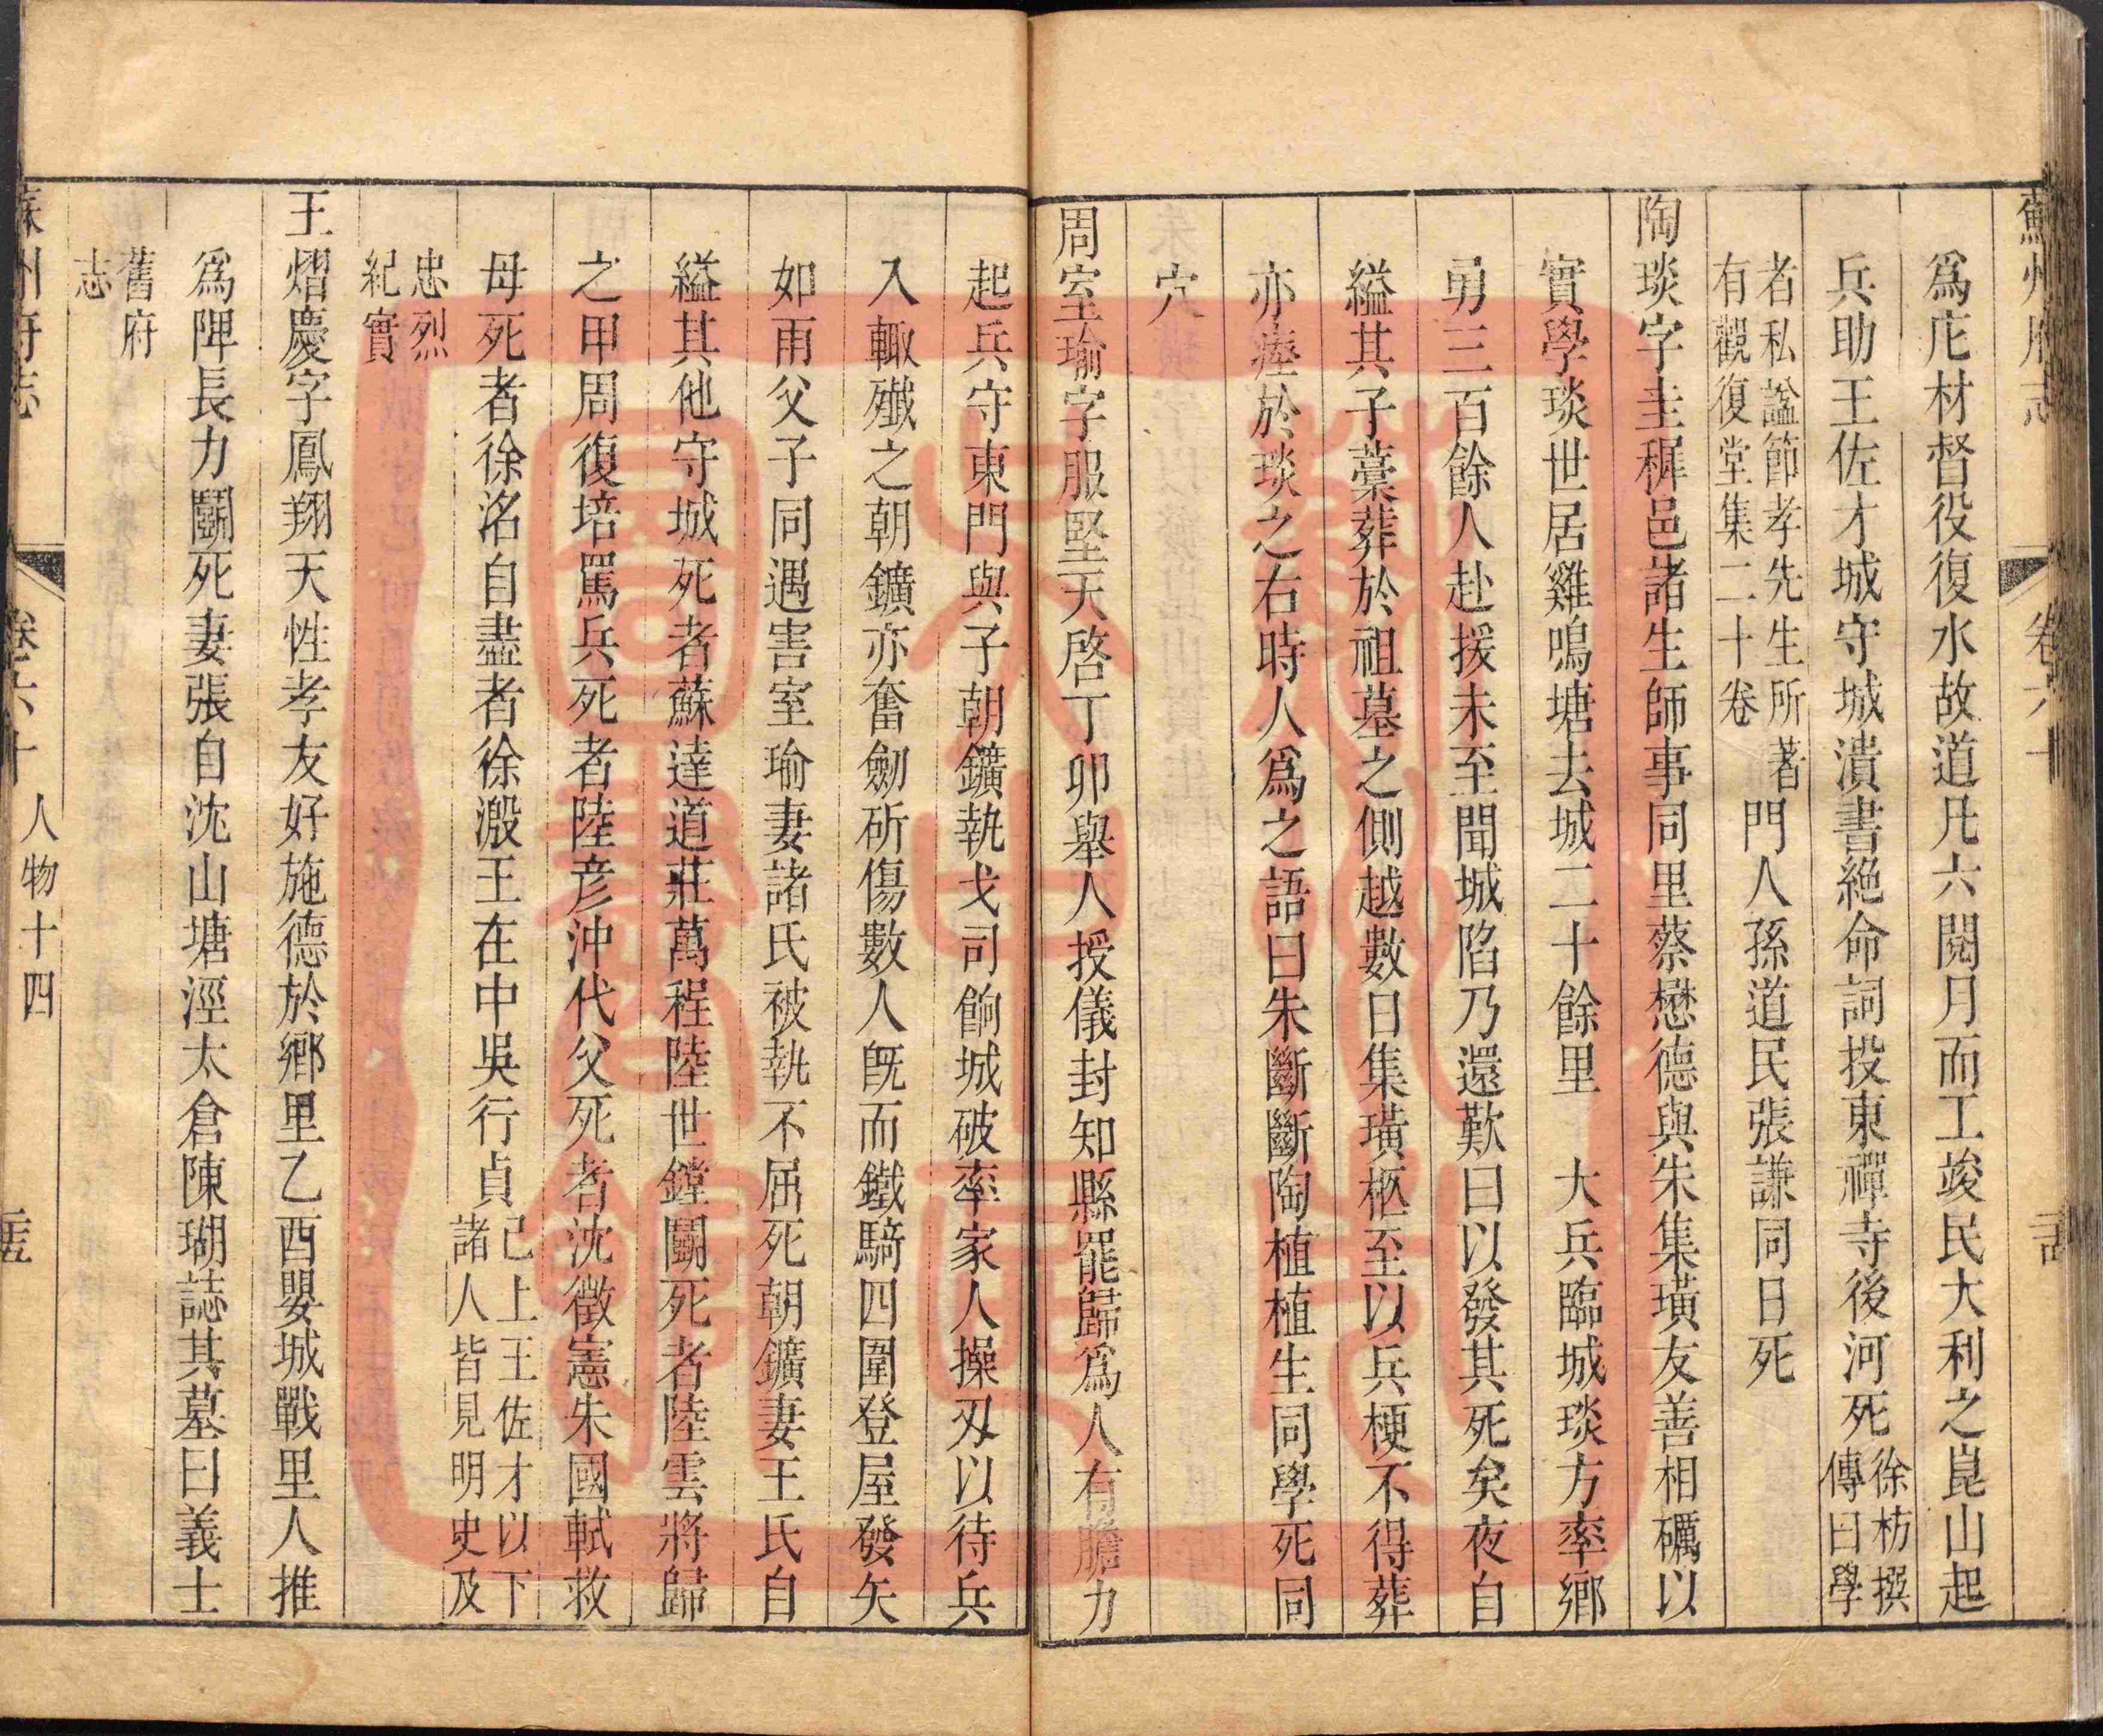 蘇州府志 卷六十
爲庀材督役復水故道凡六閱月而工竣民大利之崑山起
兵助王佐才城守城潰書絕命詞投東禪寺後河死徐枋撰傳曰學
者私謚節孝先生所著有觀復堂集二十卷門人孫道民張謙同日死
陶琰字圭穉邑諸生師事同里蔡懋德與朱集璜友善相礪以
實學琰世居雞鳴塘去城二十餘里 大兵臨城琰方率鄉
勇三百餘人赴援未至聞城陷乃還歎曰以發其死矣夜自
縊其子藁葬於祖墓之側越數日集璜柩至以兵梗不得葬
亦瘞於琰之右時人爲之語曰朱斷斷陶植植生同學死同
穴
周室瑜字服堅天啓丁卯舉人授儀封知縣罷歸爲人有膽力
起兵守東門與子朝鑛執戈司餉城破率家人操刃以待兵
入輙殲之朝鑛亦奮劒斫傷數人旣而鐵騎四圍登屋發矢
如雨父子同遇害室瑜妻諸氏被執不屈死朝鑛妻王氏自
縊其他守城死者蘇達道莊萬程陸世鏜鬭死者陸雲將歸
之甲周復培罵兵死者陸彥沖代父死者沈徵憲朱國軾救
母死者徐洺自盡者徐溵王在中吳行貞已上王佐才以下諸人皆見明史及
忠烈紀實
王熠慶字鳳翔天性孝友好施德於鄉里乙酉嬰城戰里人推
爲陴長力鬭死妻張自沈山塘涇太倉陳瑚誌其墓曰義士
舊府志
蘇州府志 卷六十 人物十四